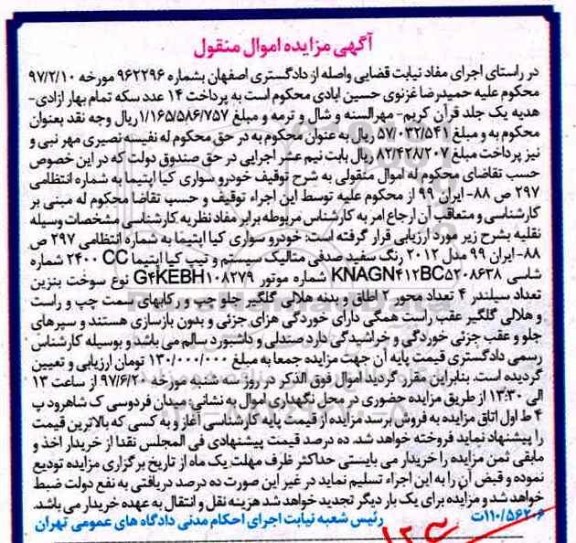 آگهی مزایده اموال منقول
در راستای اجرای مفاد نیابت قضایی واصله از دادگستری اصفهان بشماره ۹۶۲۲۹۶ مورخه ۹۷/۲/۱۰
محکوم علیه حمیدرضا غزنوی حسین ابادی محکوم است به پرداخت ۱۴ عدد سکه تمام بهار ازادی-
هدیه یک جلد قرآن کریم- مهرالسنه و شال و ترمه و مبلغ ۱/۱۶۵/۵۸۶/۷۵۷ ریال وجه نقد بعنوان
محکوم به و مبلغ ۵۷/۰۳۲/۵۴۱ ریال به عنوان محکوم به در حق محکوم له نفیسه نصیری مهر نبی و
نیز پرداخت مبلغ ۸۲/۴۲۸/۲۰۷ ریال بابت نیم عشر اجرایی در حق صندوق دولت که در این خصوص
حسب تقاضای محکوم له اموال منقولی به شرح توقیف خودرو سواری کیا اپتیما به شماره انتظامی
۲۹۷ ص ۸۸- ایران ۹۹ از محکوم علیه توسط این اجراء توقیف و حسب تقاضا محکوم له مبنی بر
کارشناسی و متعاقب آن ارجاع امر به کارشناس مربوطه برابر مفاد نظریه کارشناسی مشخصات وسیله
نقلیه بشرح زیر مورد ارزیابی قرار گرفته است: خودرو سواری کیا اپتیما به شماره انتظامی ۲۹۷ ص
۸۸- ایران ۹۹ مدل ۲۰۱۲ رنگ سفید صدفی متالیک سیستم و تیپ کیا اپتیما ۲۴۰۰ CC شماره
شاسی KNAGN۴۱۲BC۵۲۰۸۶۳۸ شماره موتور G۴KEBH۱۰۸۲۷۹ نوع سوخت بنزین
تعداد سیلندر ۴ تعداد محور ۲ اطاق و بدنه هلالی گلگیر جلو چپ و رکابهای سمت چپ و راست
و هلالی گلگیر عقب راست همگی دارای خوردگی هزای جزئی و بدون بازسازی هستند و سپرهای
جلو و عقب جزئی خوردگی و خراشیدگی دارد صندلی و داشبورد سالم می باشد و بوسیله کارشناس
رسمی دادگستری قیمت پایه آن جهت مزایده جمعا به مبلغ ۱۳۰/۰۰۰/۰۰۰ تومان ارزیابی و تعیین
گردیده است. بنابراین مقرر گردید اموال فوق الذکر در روز سه شنبه مورخه ۹۷/۶/۲۰ از ساعت ۱۳
الی ۱۳:۳۰ از طریق مزایده حضوری در محل نگهداری اموال به نشانی: میدان فردوسی ک شاهرود پ
۴ ط اول اتاق مزایده به فروش برسد مزایده از قیمت پایه کارشناسی آغاز و به کسی که بالاترین قیمت
را پیشنهاد نماید فروخته خواهد شد. ده درصد قیمت پیشنهادی فی المجلس نقدا از خریدار اخذ و
مابقی ثمن مزایده را خریدار می بایستی حداکثر ظرف مهلت یک ماه از تاریخ برگزاری مزایده تودیع
نموده و قبض آن را به این اجراء تسلیم نماید در غیر این صورت ده درصد دریافتی به نفع دولت ضبط
خواهد شد و مزایده برای یک بار دیگر تجدید خواهد شد هزینه نقل و انتقال به عهده خریدار می باشد.
۱۱۰/۵۶۲۰۶ت رئیس شعبه نیابت اجرای احکام مدنی دادگاه های عمومی تهران